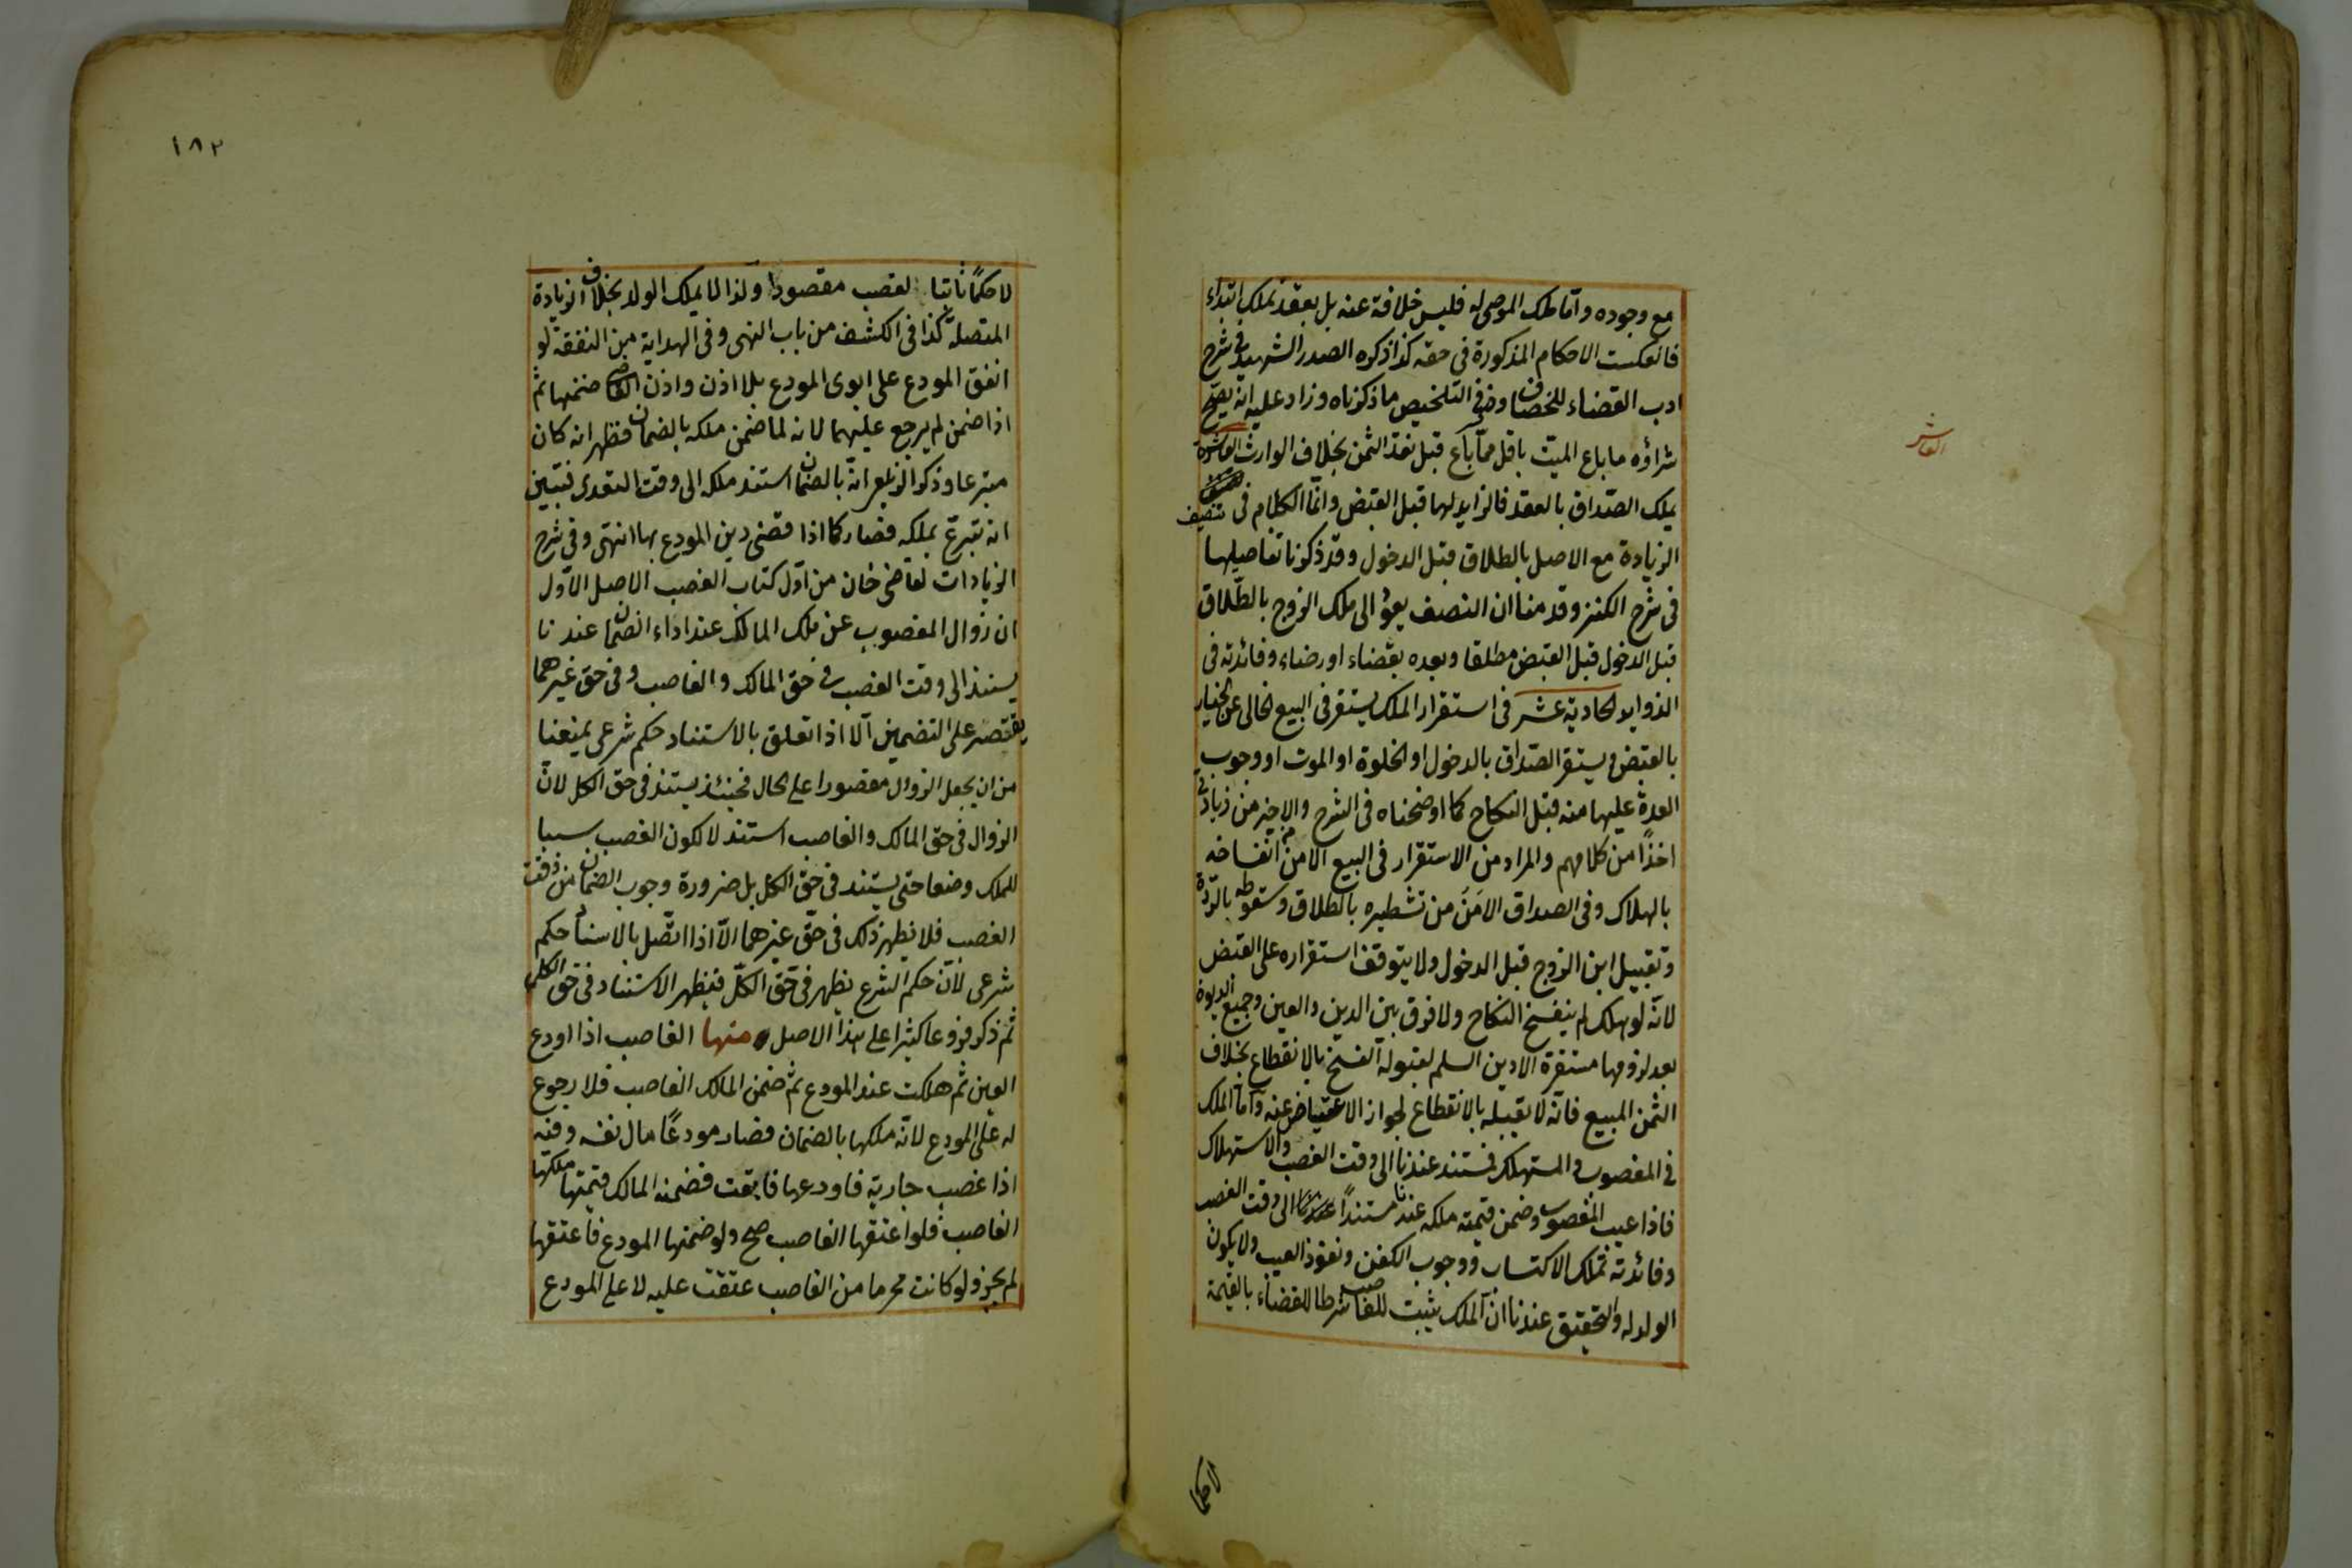 مع وجوده واما ملك الموصى له فليس خلافة عنه بل بعقد تملك ابتداء
فانعكست الاحكام المذكورة فى حقه كذا ذكره الصدر الشهيد فى شرح
ادب القضاء للخصاف وفى التلخيص ما ذكرناه وزاد عليه انه يصح
شراؤه ما باع الميت باقل مما باع قبل نقد الثمن بخلاف الوارث العاشرة
يملك الصداق بالعقد فالزايد لها قبل القبض وانما الكلام فى تنصيف
الزيادة مع الاصل بالطلاق قبل الدخول وقد ذكرنا تفاصيلها
فى شرح الكنز وقدمنا ان النصف يعود الى ملك الزوج بالطلاق
قبل الدخول قبل القبض مطلقا وبعده بقضاء او رضاء وفائدته فى
الزوايد الحادية عشر فى استقرار الملك يستقر فى البيع الخالى عن الخيار
بالقبض ويستقر الصداق بالدخول او الخلوة او الموت او وجوب
العدة عليها منه قبل النكاح كما اوضحناه فى الشرح والاخير من زياداتى
اخذا من كلامهم والمراد من الاستقرار فى البيع الامن من انفساخه
بالهلاك وفى الصداق الامن من تشطيره بالطلاق وسقوطه بالردة
وتقبيل ابن الزوج قبل الدخول ولا يتوقف استقراره على القبض
لانه لو هلك لم ينفسخ النكاح ولا فرق بين الدين والعين وجميع الديون
بعد لزومها مستقرة الا دين السلم لقبوله الفسخ بالانقطاع بخلاف
الثمن المبيع فانه لا يقبله بالانقطاع لجواز الاعتياض عنه واما الملك
فى المغصوب والمستهلك فمستند عندنا الى وقت الغصب والاستهلاك
فاذا عيب المغصوب وضمن قيمته ملكه عندنا مستندا الى وقت الغصب
وفائدته تملك الاكتساب ووجوب الكفن ونفوذ العيب ولا يكون
الولد له والتحقيق عندنا ان الملك يثبت للغاصب شرطا للقضاء بالقيمة
لا حكما
العاشر
١٨٢
لا حكما ثابتا لغصب مقصودا ولذا لا يملك الولد بخلاف الزيادة
المتصلة كذا فى الكشف من باب النهى وفى الهداية من النفقة لو
انفق المودع على ابوى المودع بلا اذن واذن القاضى ضمنها ثم
اذا ضمن لم يرجع عليهما لانه لما ضمن ملكه بالضمان فظهر انه كان
متبرعا وذكر الزيلعى انه بالضمان استند ملكه الى وقت التعدى فتبين
انه تبرع بملكه فصار كما اذا قضى دين المودع بها انتهى وفى شرح
الزيادات لقاضى خان من اول كتاب الغصب الاصل الاول
ان زوال المغصوب عن ملك المالك عند اداء الضمان عندنا
يستند الى وقت الغصب فى حق المالك والغاصب وفى حق غيرهما
يقتصر على التضمين الا اذا تعلق بالاستناد حكم شرعى يمنعنا
من ان يجعل الزوال مقصورا على الحال فحينئذ يستند فى حق الكل لان
الزوال فى حق المالك والغاصب استند لا لكون الغصب سببا
للملك وضعا حتى يستند فى حق الكل بل ضرورة وجوب الضمان من وقت
الغصب فلا يظهر ذلك فى حق غيرهما الا اذا اتصل بالاسناد حكم
شرعى لان حكم الشرع يظهر فى حق الكل فيظهر الاستناد فى حق الكل
ثم ذكر فروعا كثيرا على هذا الاصل منها الغاصب اذا اودع
العين ثم هلكت عند المودع ثم ضمن المالك الغاصب فلا رجوع
له على المودع لانه ملكها بالضمان فصار مودعا مال نفسه ومنه
اذا غصب جارية فاودعها فابقت فضمنه المالك قيمتها ملكها
الغاصب فلو اعتقها الغاصب صح ولو ضمنها المودع فاعتقها
لم يجز ولو كانت محرما من الغاصب عتقت عليه لا على المودع